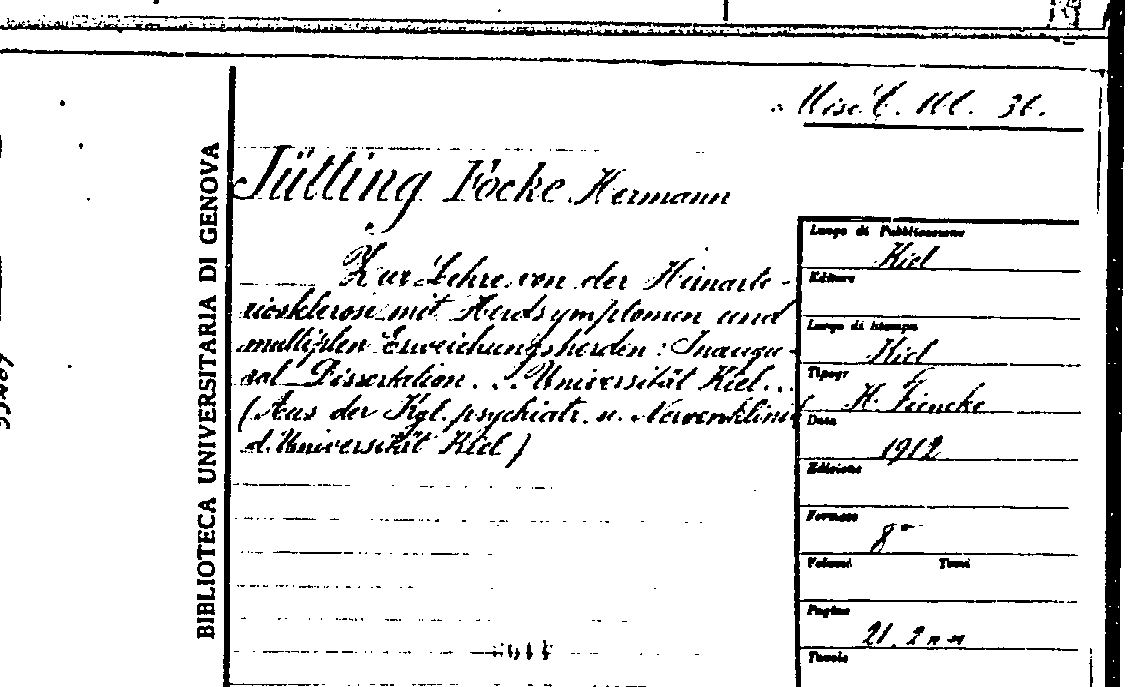 Misc. C. III. 31.
BIBLIOTECA UNIVERSITARIA DI GENOVA
Jütting Focke Hermann
Zur Lehre von der Hirnarte-
riosklerose mit Herdsymptomen und
multiplen Erweichungsherden : Inaugu-
ral Dissertation... Universität Kiel...
(Aus der Kgl. psychiatr. u. Nervenklinik
d. Universität Kiel)
Luogo di Pubblicazione
Kiel
Editore
Luogo di stampa
Kiel
Tipogr
H. Fiencke
Data
1912
Edizione
Formato
8°
Volumi Tomi
Pagine
21. 2 n n
Tavole